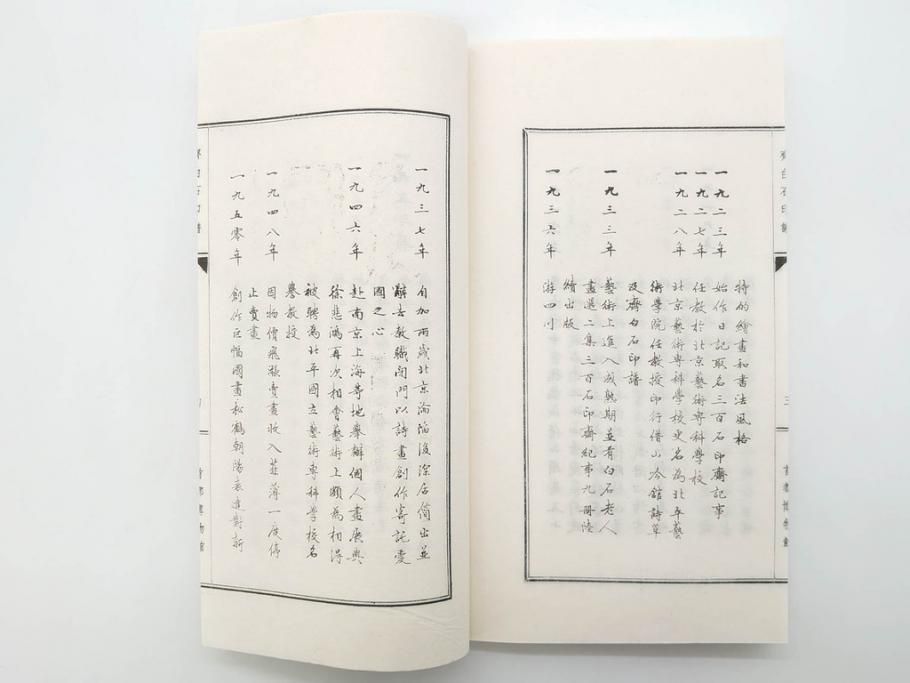 齊白石印譜
三
首都博物館
特的繪畫和書法風格
一九二三年 始作日記取名三百石印齋記事
一九二七年 任教於北京藝術專科學校
一九二八年 北京藝術專科學校更名為北平藝
術學院任教授印行借山吟館詩草
及齊白石印譜
一九三三年 藝術上進入成熟期並有白石老人
畫選二集三百石印齋紀事九冊陸
續出版
一九三六年 游四川
一九三七年 自加兩歲北京淪陷後深居簡出並
辭去教職閉門以詩畫創作寄託愛
國之心
一九四六年 赴南京上海等地舉辦個人畫展與
徐悲鴻再次相會藝術上頗為相得
被聘為北平國立藝術專科學校名
譽教授
一九四八年 因物價飛漲賣畫收入菲薄一度停
止賣畫
一九五零年 創作巨幅國畫松鶴朝陽表達對新
齊白石印譜
首都博物館